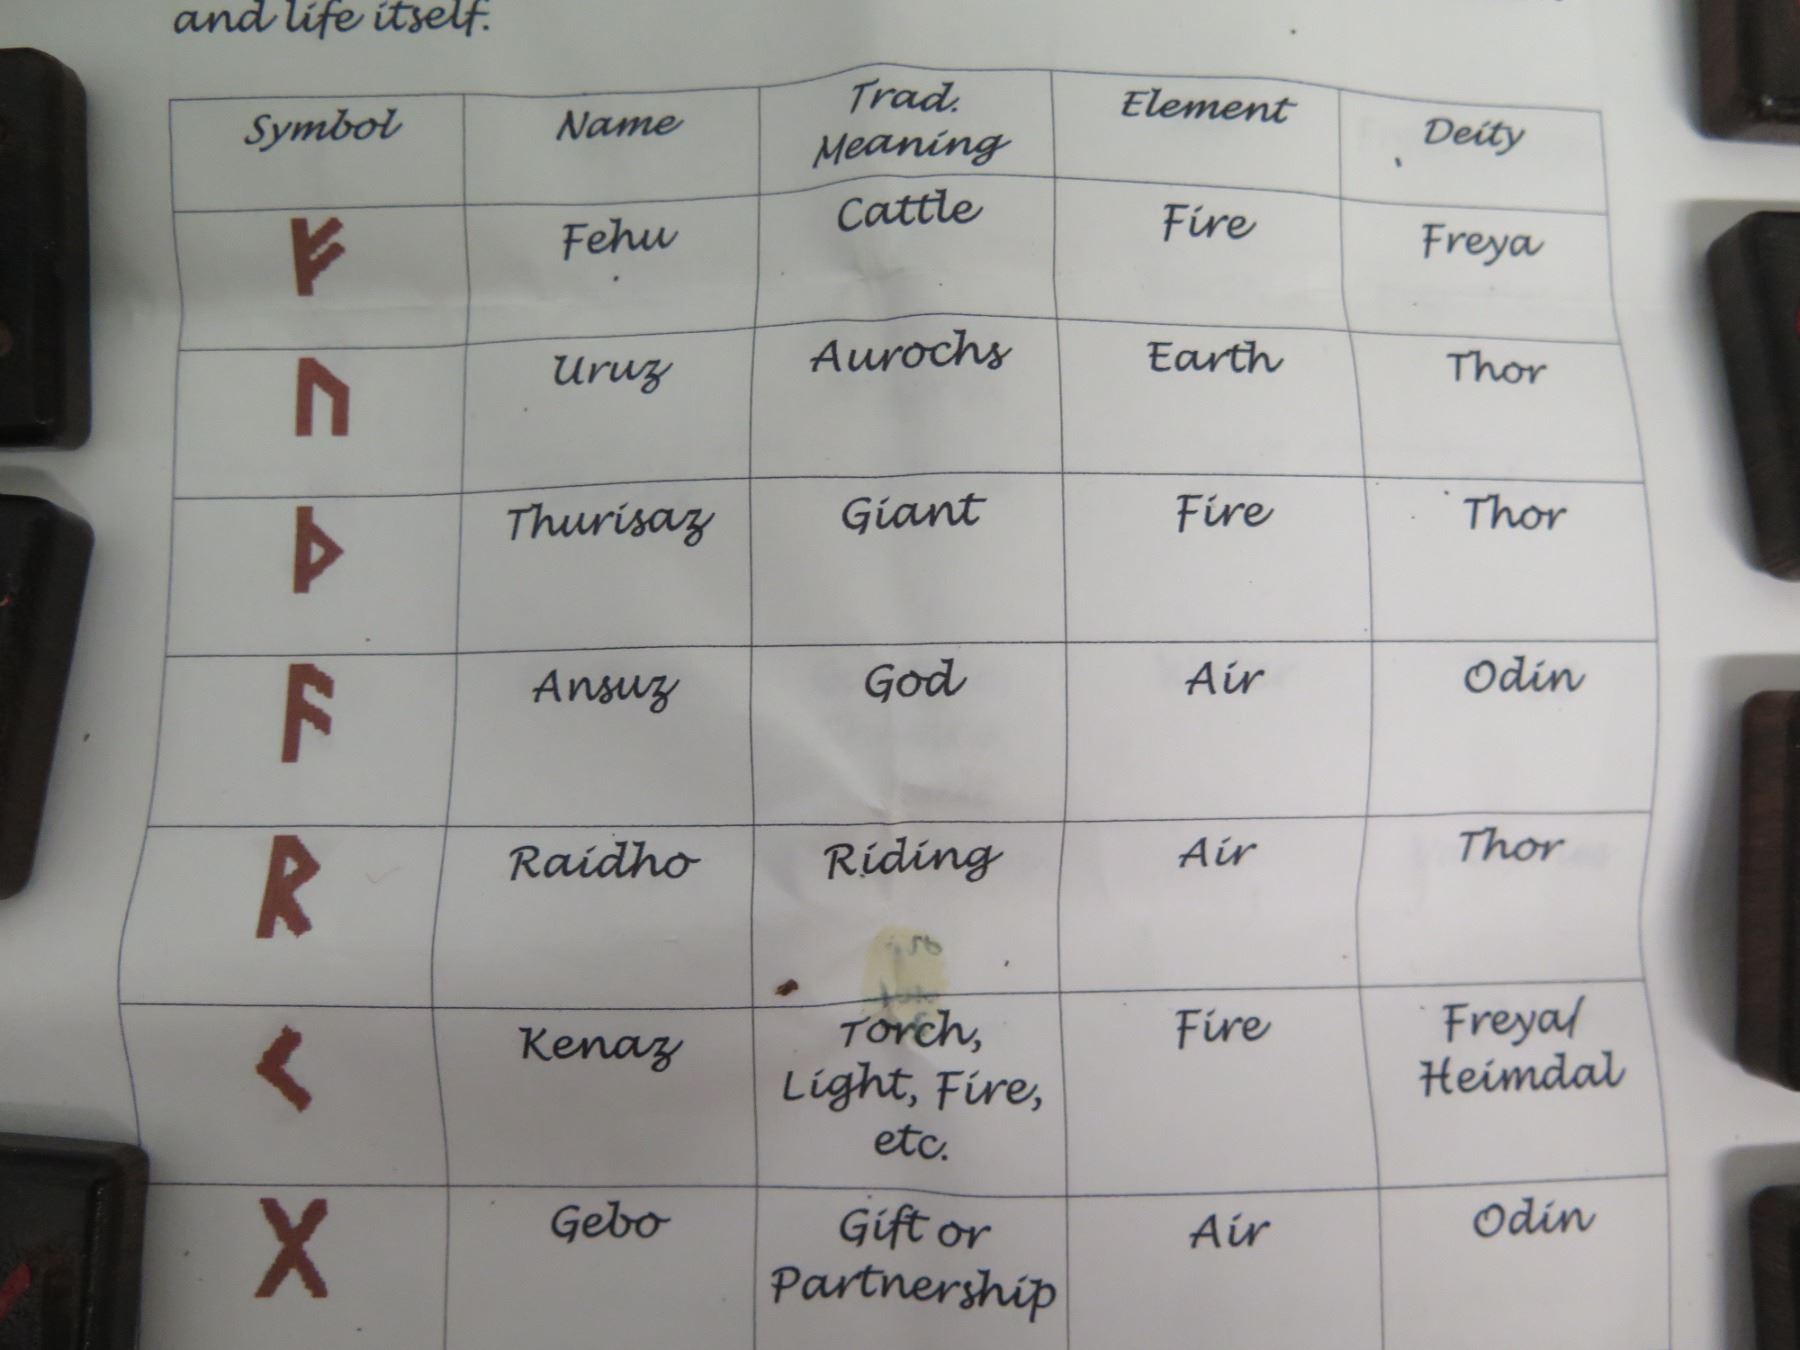 and life itself.
Symbol Name Trad. Meaning Element Deity
ᚠ Fehu Cattle Fire Freya
ᚢ Uruz Aurochs Earth Thor
ᚦ Thurisaz Giant Fire Thor
ᚨ Ansuz God Air Odin
ᚱ Raidho Riding Air Thor
ᚲ Kenaz Torch, Light, Fire, etc. Fire Freya/ Heimdal
ᚷ Gebo Gift or Partnership Air Odin